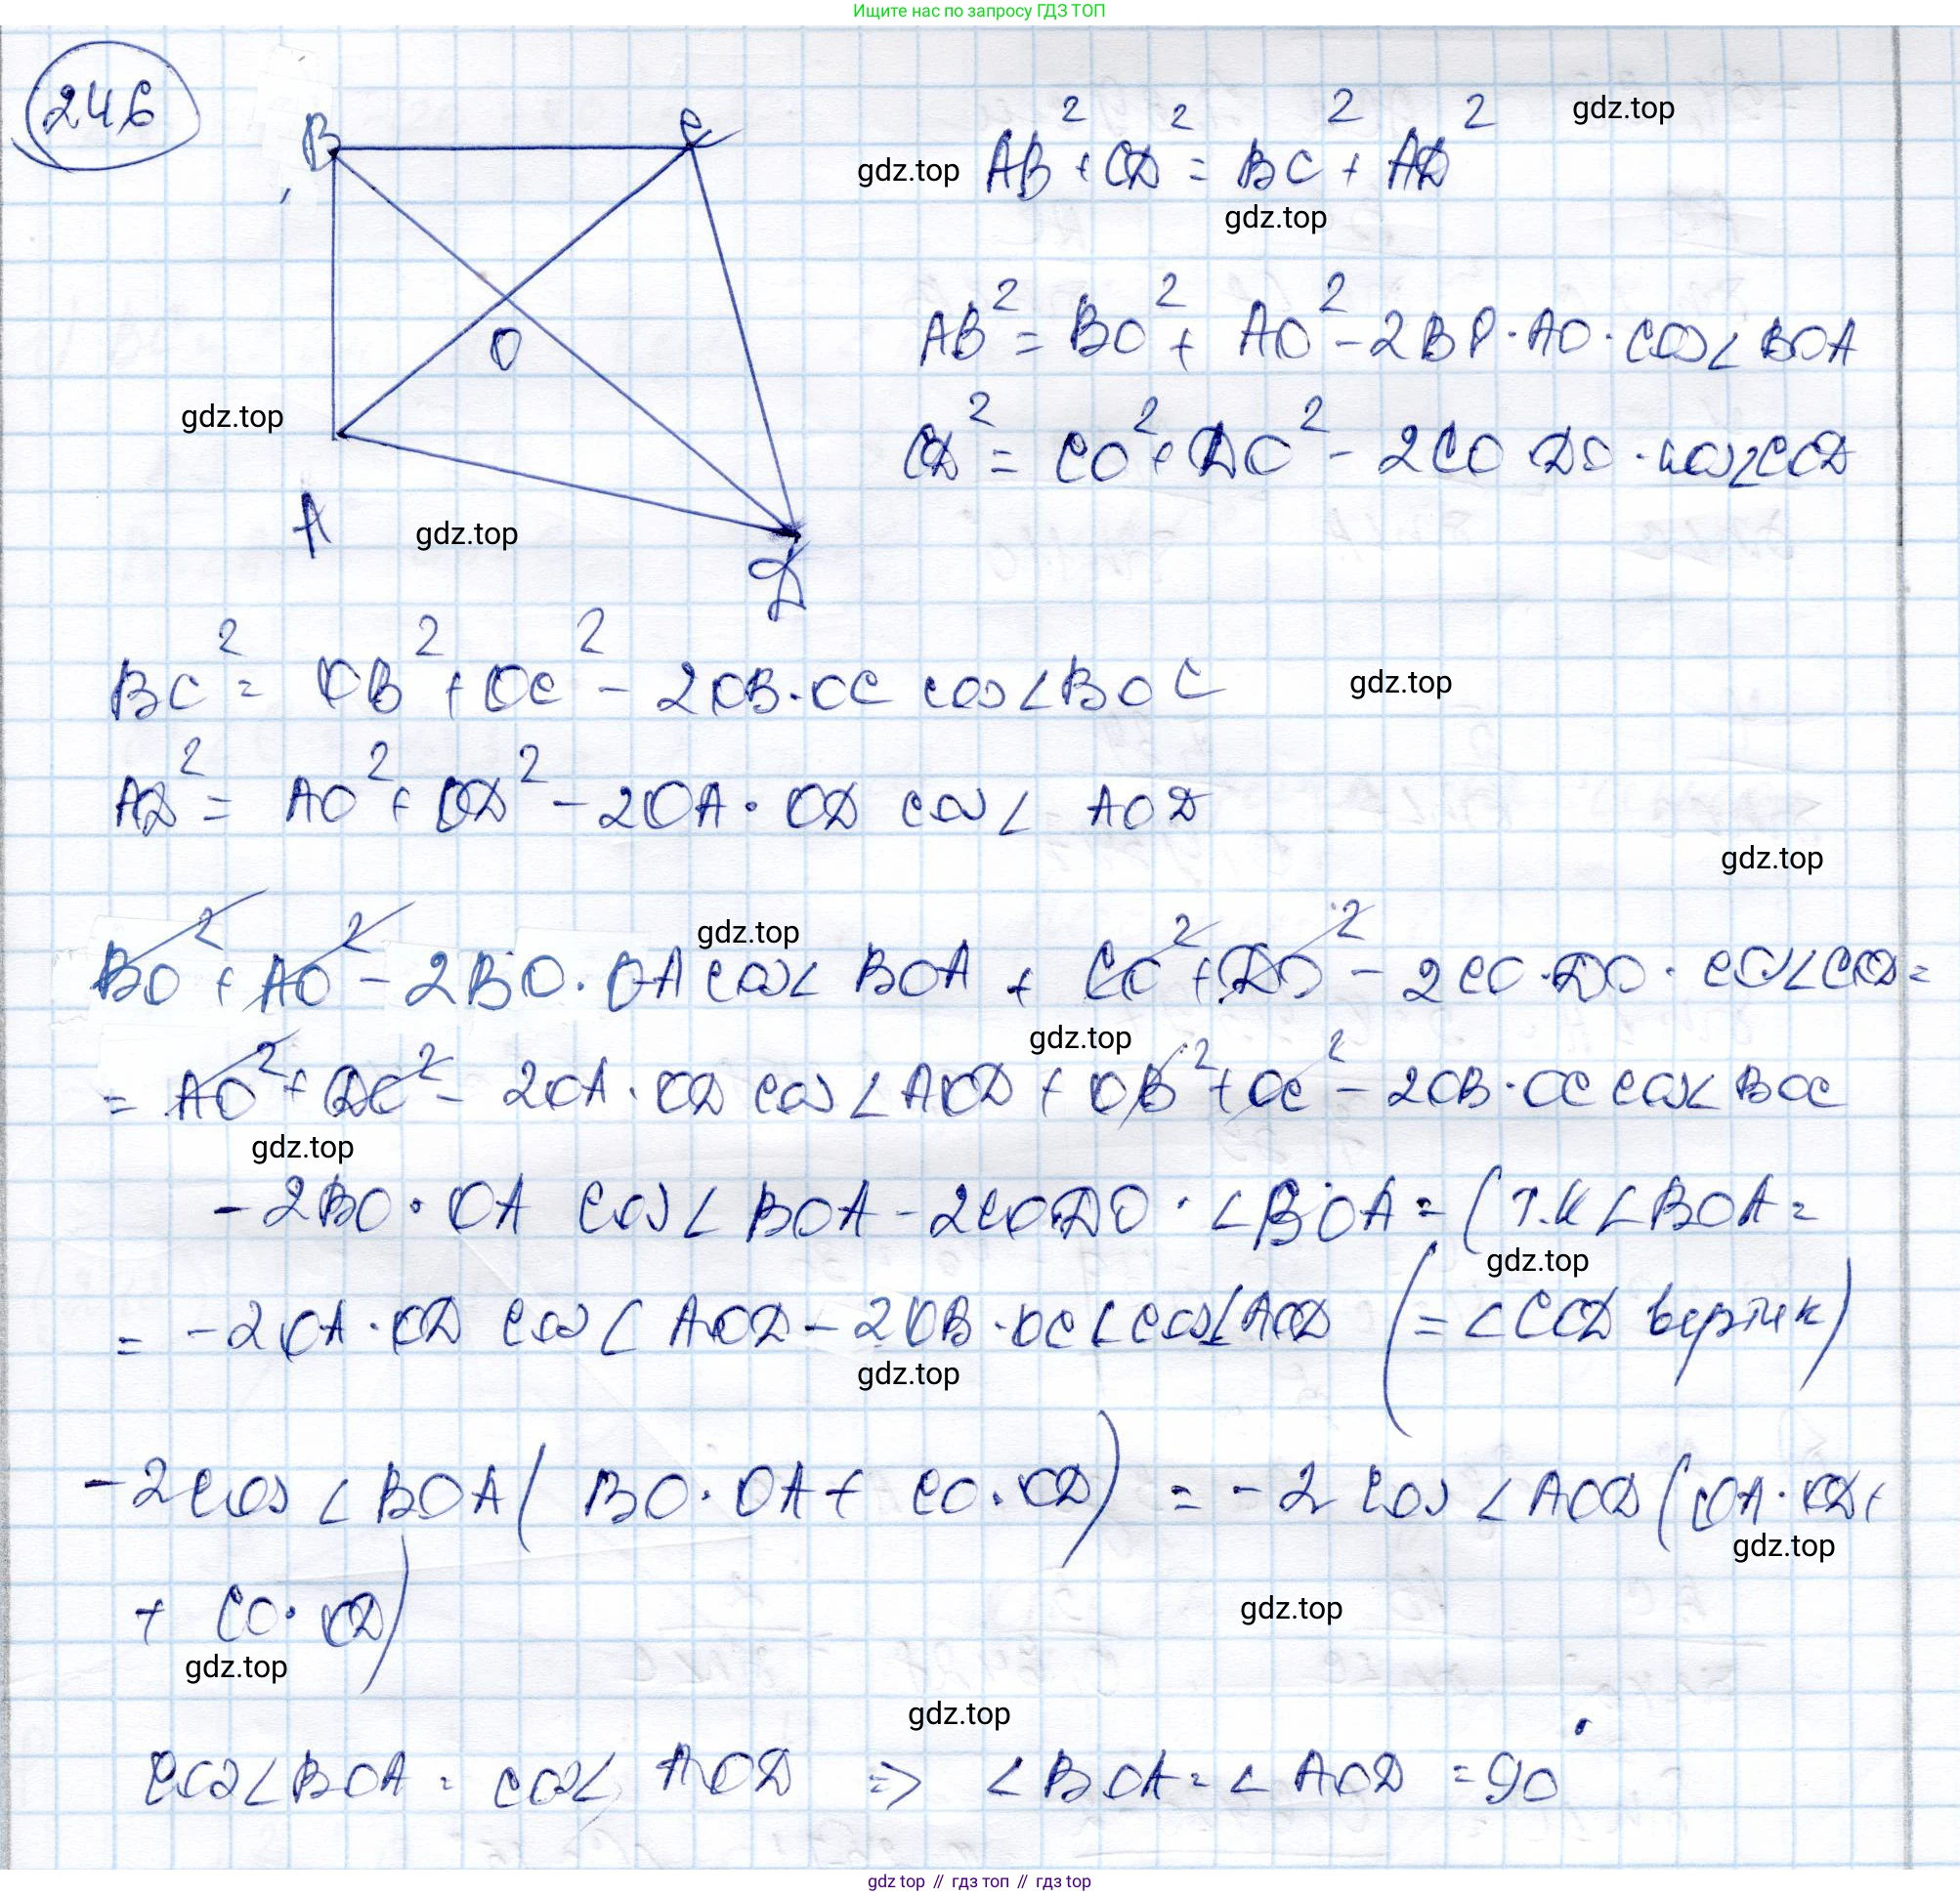 Ищите нас по запросу ГДЗ ТОП
246
B
C
gdz.top
AB² + CD² = BC² + AD²
gdz.top
gdz.top
O
AB² = BO² + AO² - 2BO · AO · cos∠BOA
gdz.top
CD² = CO² + DO² - 2CO DO · cos∠COD
A
gdz.top
D
BC² = OB² + OC² - 2OB · OC cos∠BOC
gdz.top
AD² = AO² + OD² - 2OA · OD cos∠ AOD
gdz.top
gdz.top
BO² + AO² - 2BO · OA cos∠ BOA + CO² + DO² - 2CO · DO · cos∠COD =
gdz.top
= AO² + DO² - 2OA · OD cos∠AOD + OB² + OC² - 2OB · OC cos∠BOC
gdz.top
- 2BO · OA cos∠BOA - 2CO DO · ∠BOA = (т.к ∠BOA =
gdz.top
= -2OA · OD cos∠AOD - 2OB · OC∠cos∠AOD (= ∠COD вертик)
gdz.top
-2cos∠BOA(BO · OA + CO · OD) = -2cos∠AOD(OA · OD +
gdz.top
+ CO · OD)
gdz.top
gdz.top
gdz.top
cos∠BOA = cos∠ AOD => ∠BOA = ∠AOD = 90°
gdz top // гдз топ // гдз top